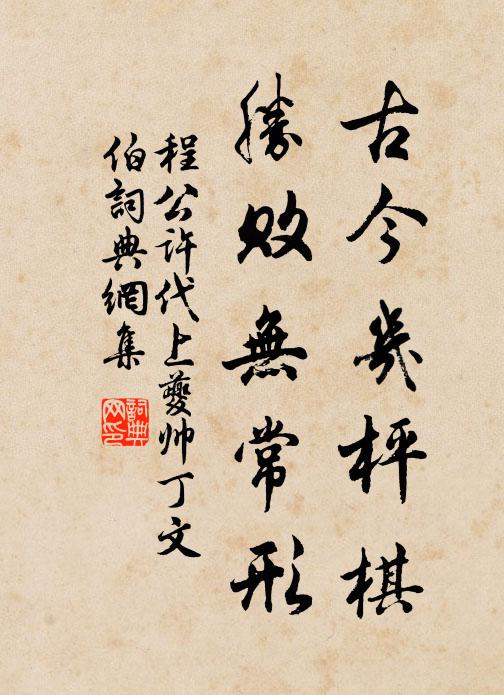 古今幾枰棋
勝敗無常形
程公许代上夔帅丁文
伯詞典網集
詞典网印